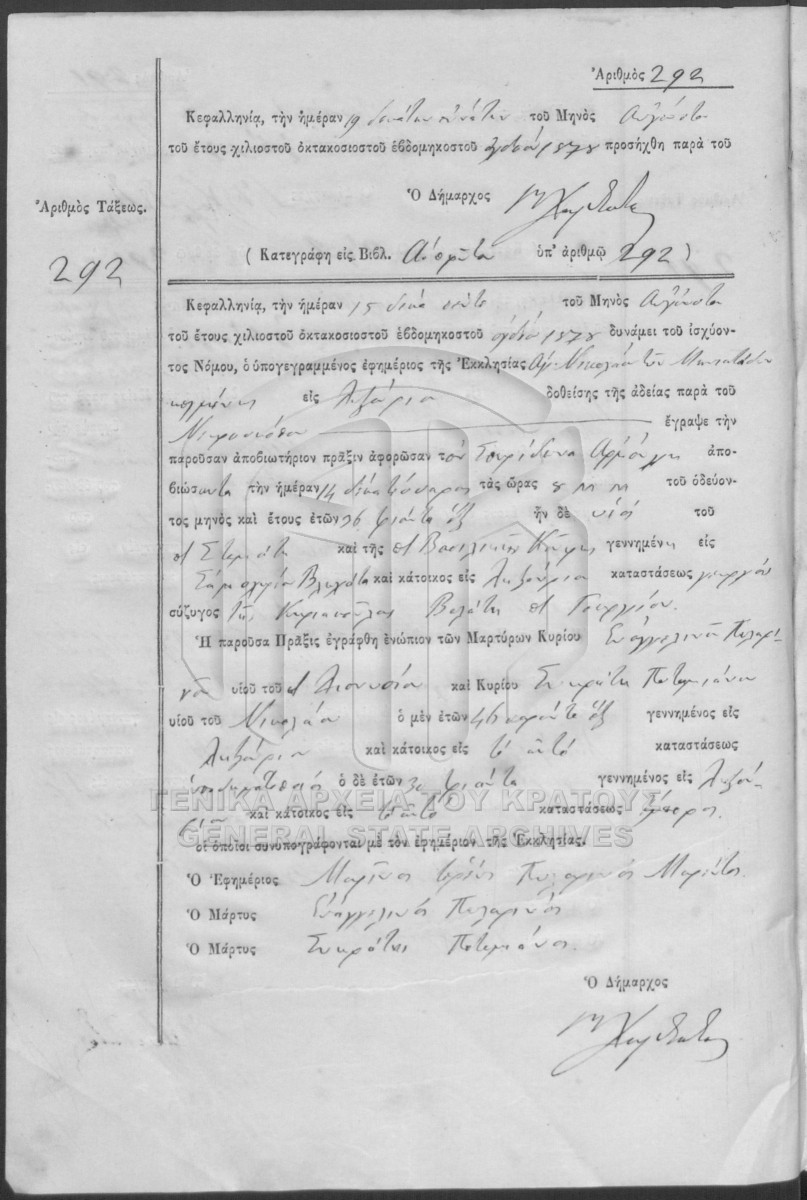 Ἀριθμὸς 292
Κεφαλληνίᾳ, τὴν ἡμέραν 19 δεκάτην ἐνάτην τοῦ Μηνὸς Αὐγούστου
τοῦ ἔτους χιλιοστοῦ ὀκτακοσιοστοῦ ἑβδομηκοστοῦ ὀγδόου 1878 προσήχθη παρὰ τοῦ
Ὁ Δήμαρχος
Ἀριθμὸς Τάξεως.
292
( Κατεγράφη εἰς Βιβλ. ὑπ' ἀριθμῷ 292 )
Κεφαλληνίᾳ, τὴν ἡμέραν 15 δεκάτη πέμπτη τοῦ Μηνὸς Αὐγούστου
τοῦ ἔτους χιλιοστοῦ ὀκτακοσιοστοῦ ἑβδομηκοστοῦ ὀγδόου 1878 δυνάμει τοῦ ἰσχύον-
τος Νόμου, ὁ ὑπογεγραμμένος ἐφημέριος τῆς Ἐκκλησίας Ἁγ. Νικολάου τῶν
εἰς Ληξούριον δοθείσης τῆς ἀδείας παρὰ τοῦ
ἔγραψε τὴν
παροῦσαν ἀποβιωτήριον πρᾶξιν ἀφορῶσαν τὸν Σπυρίδωνα ἀπο-
βιώσαντα τὴν ἡμέραν 14 δεκάτη τετάρτη τὰς ὥρας 8 τοῦ ὁδεύον-
τος μηνὸς καὶ ἔτους ἐτῶν 36 τριάντα ἕξ ἦν δὲ υἱὸς τοῦ
καὶ τῆς Βασιλικῆς γεννημένος εἰς
καὶ κάτοικος εἰς Ληξούριον καταστάσεως γεωργοῦ
σύζυγος τῆς Γεωργίου.
Ἡ παροῦσα Πρᾶξις ἐγράφθη ἐνώπιον τῶν Μαρτύρων Κυρίου Εὐαγγελινοῦ Πυλαρι-
νοῦ υἱοῦ τοῦ Διονυσίου καὶ Κυρίου Σωκράτη Ποταμιάνου
υἱοῦ τοῦ Νικολάου ὁ μὲν ἐτῶν 46 σαράντα ἕξ γεννημένος εἰς
Ληξούριον καὶ κάτοικος εἰς τὸ αὐτὸ καταστάσεως
ὁ δὲ ἐτῶν 30 τριάντα γεννημένος εἰς Ληξού-
ριον καὶ κάτοικος εἰς τὸ αὐτὸ καταστάσεως ἔμπορος.
οἱ ὁποῖοι συνυπογράφονται μὲ τὸν ἐφημέριον τῆς Ἐκκλησίας.
Ὁ Ἐφημέριος Μαρῖνος ἱερεὺς Πυλαρινὸς
Ὁ Μάρτυς Εὐαγγελινὸς Πυλαρινὸς
Ὁ Μάρτυς Σωκράτης Ποταμιάνος
Ὁ Δήμαρχος
ΓΕΝΙΚΑ ΑΡΧΕΙΑ ΤΟΥ ΚΡΑΤΟΥΣ
GENERAL STATE ARCHIVES